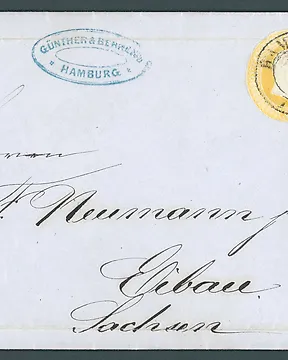 GÜNTHER & BEHREND
* HAMBURG *
HAM
F. Neumann
Eibau
Sachsen